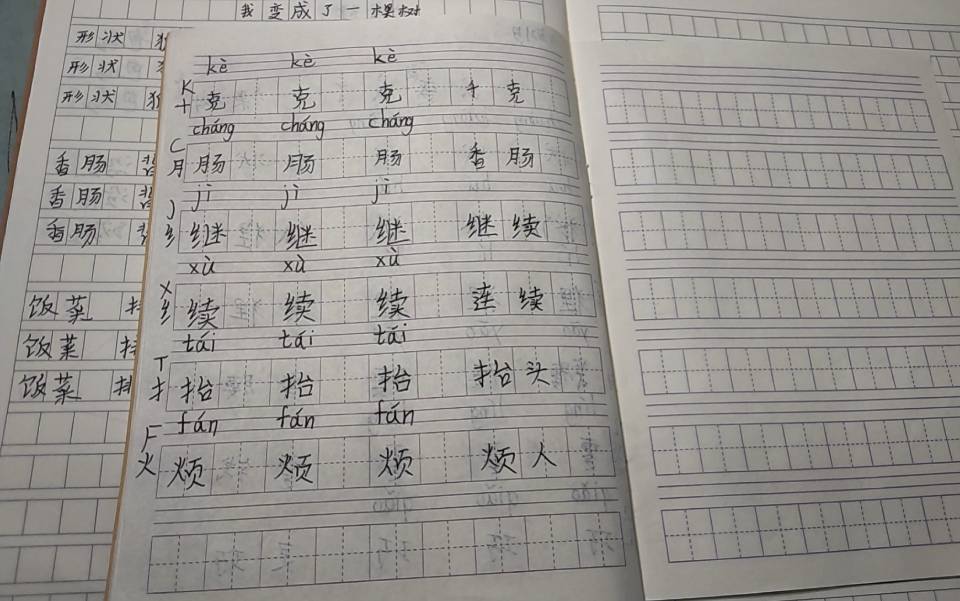 我变成了一棵树
形状
形状
形状
香肠
香肠
香肠
饭菜
饭菜
饭菜
kè kè kè
K
十 克 克 克 千克
cháng cháng cháng
C
月 肠 肠 肠 香肠
jì jì jì
J
纟 继 继 继 继续
xù xù xù
X
纟 续 续 续 连续
tái tái tái
T
扌 抬 抬 抬 抬头
fán fán fán
F
火 烦 烦 烦 烦人